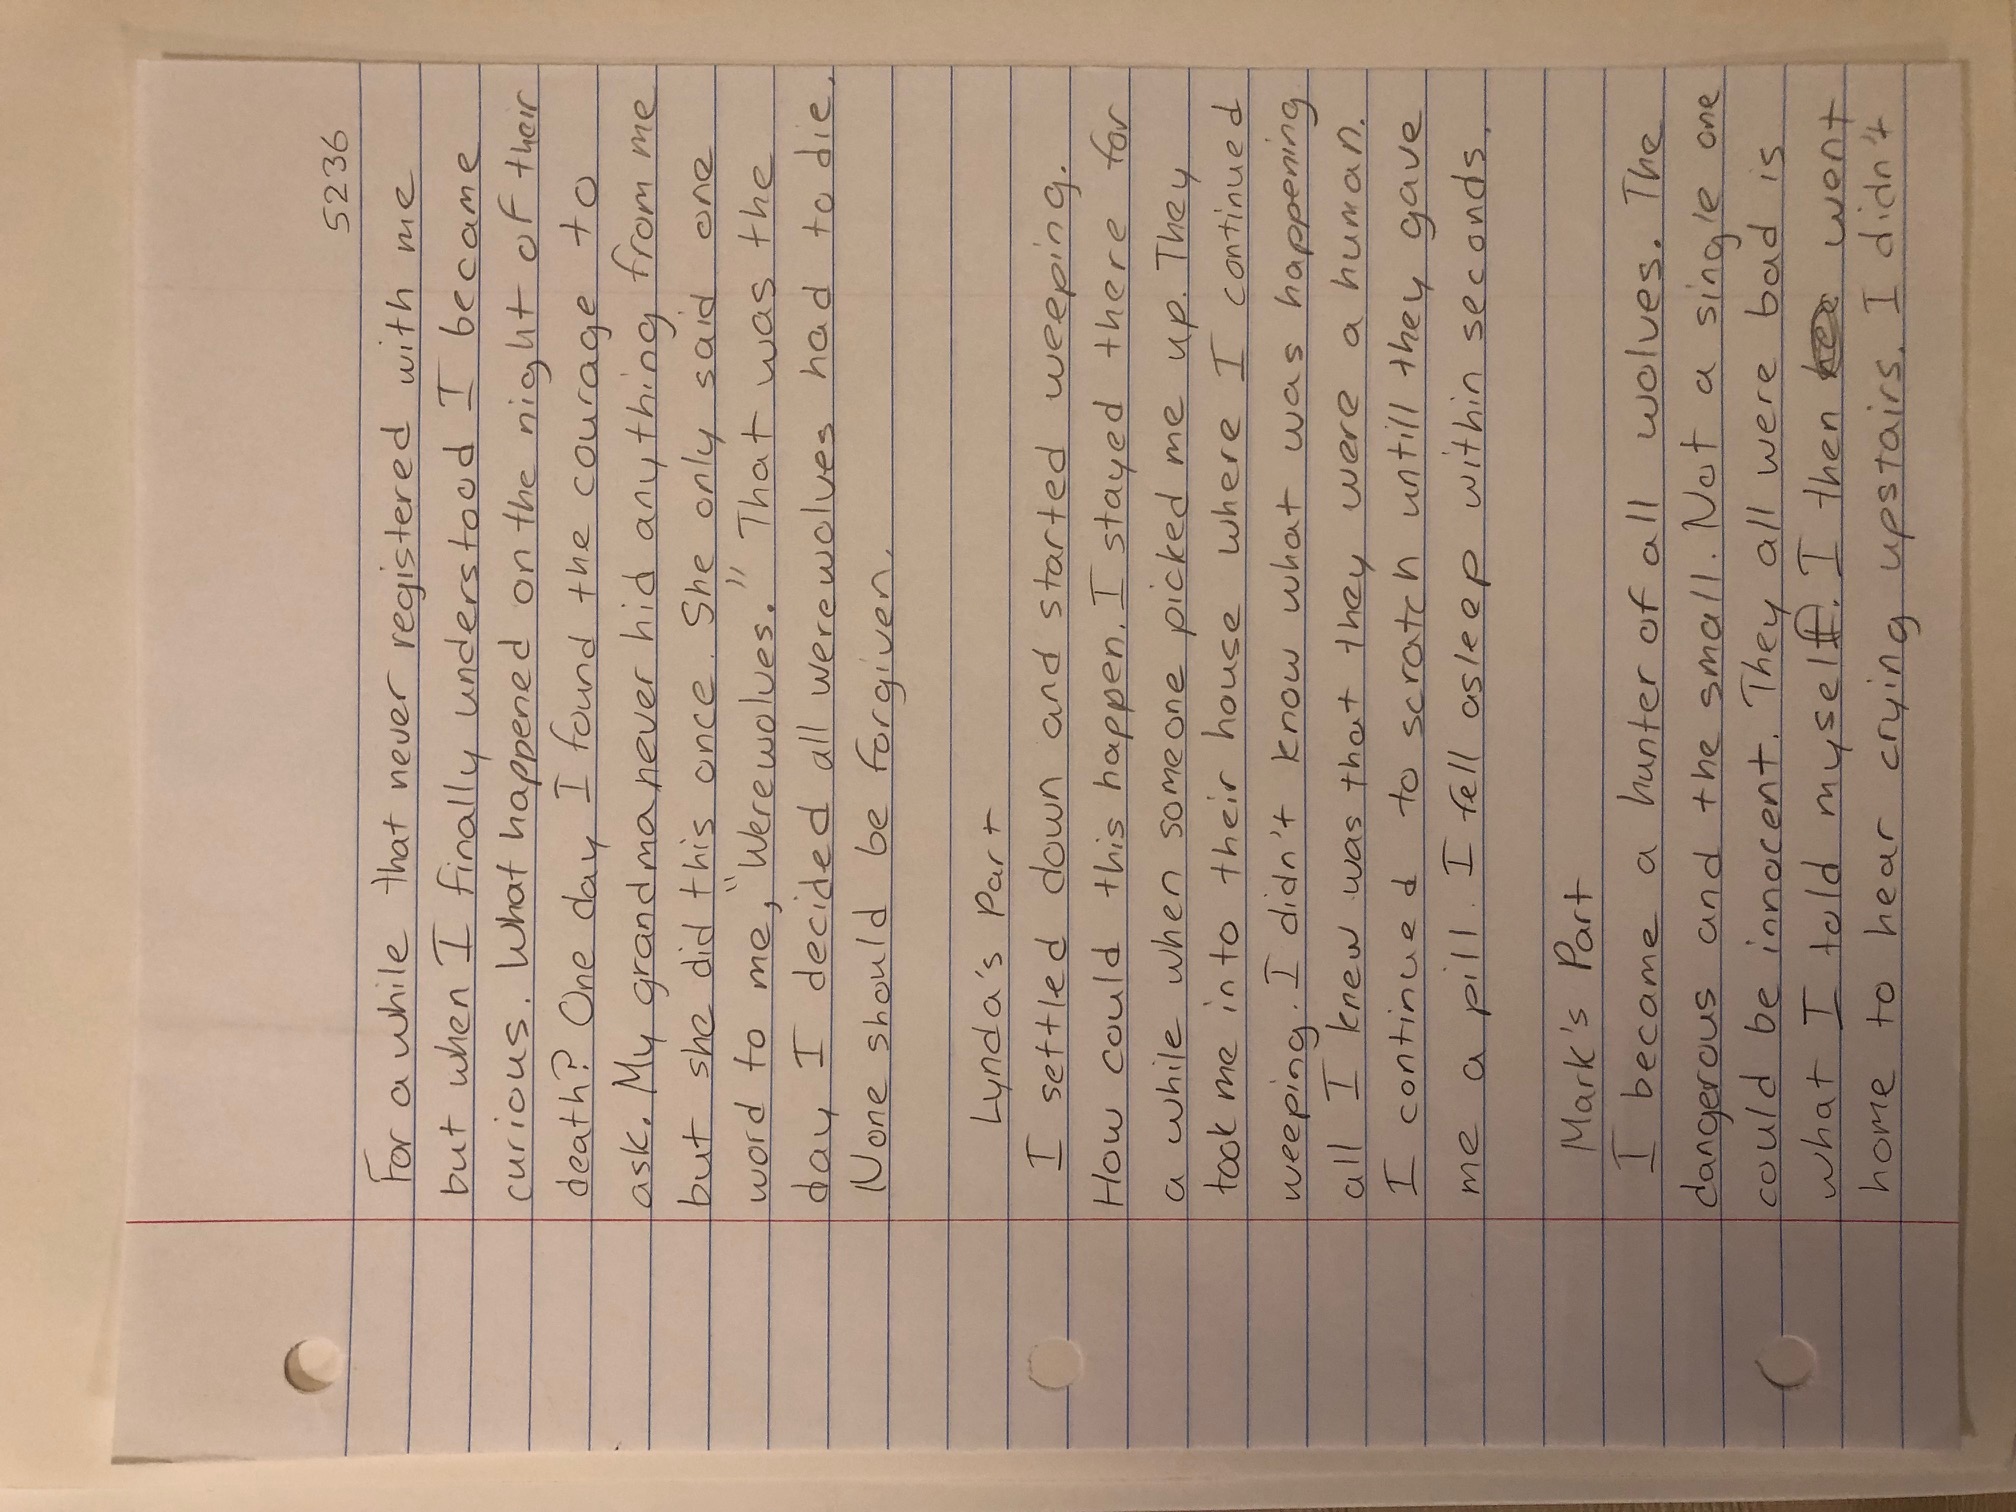 5236
For a while that never registered with me
but when I finally understood I became
curious. What happened on the night of their
death? One day I found the courage to
ask. My grandma never hid anything from me
but she did this once. She only said one
word to me, "Werewolves." That was the
day I decided all werewolves had to die.
None should be forgiven.
Lynda's Part
I settled down and started weeping.
How could this happen. I stayed there for
a while when someone picked me up. They
took me into their house where I continued
weeping. I didn't know what was happening
all I knew was that they were a human.
I continued to scratch untill they gave
me a pill. I fell asleep within seconds.
Mark's Part
I became a hunter of all wolves. The
dangerous and the small. Not a single one
could be innocent. They all were bad is
what I told myself. I then went
home to hear crying upstairs. I didn't